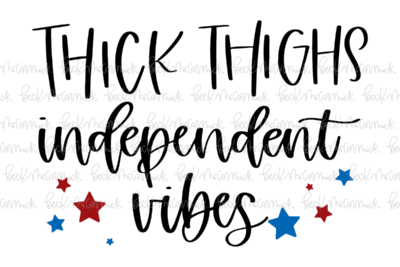 THICK THIGHS
independent
vibes